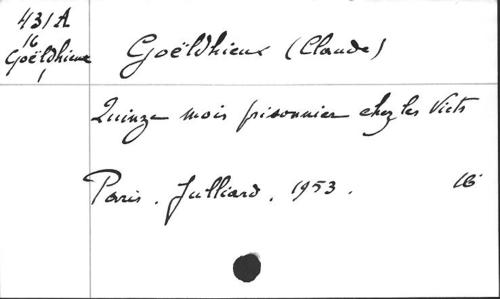 431A
16
Goëldhieux
1
Goëldhieux (Claude)
Quinze mois prisonnier chez les Viets
Paris. Julliard. 1953. 16